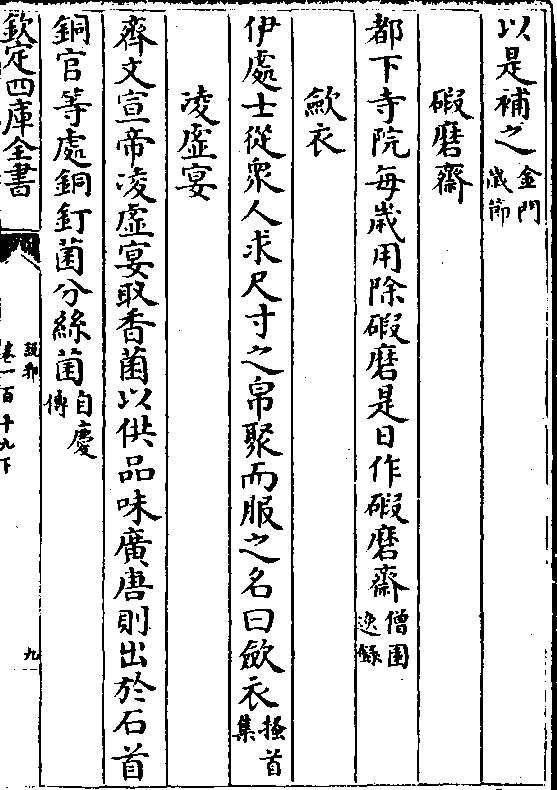 以是補之金門歲節
碬磨齋
都下寺院每歲用除碬磨是日作碬磨齋僧園逸録
歛衣
伊處士從衆人求尺寸之帛聚而服之名曰歛衣搔首集
凌虛宴
齊文宣帝凌虛宴取香菌以供品味廣唐則出於石首
銅官等處銅釘菌分絲菌自慶傳
欽定四庫全書
說郛
卷一百十九下
九